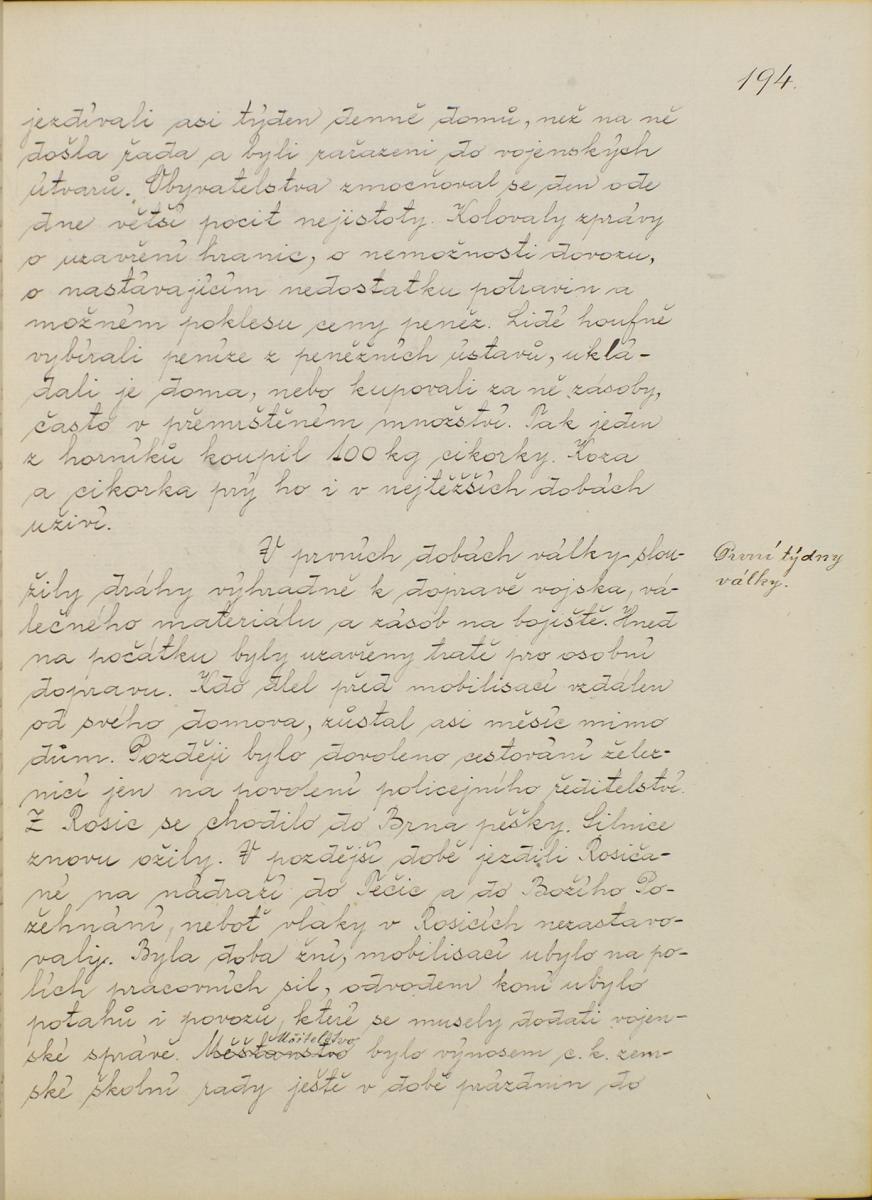 194.
jezdívali asi týden denně domů, než na ně
došla řada a byli zařazeni do vojenských
útvarů. Obyvatelstva zmocňoval se den ode
dne větší pocit nejistoty. Kolovaly zprávy
o uzavření hranic, o nemožnosti dovozu,
o nastávajícím nedostatku potravin a
možném poklesu ceny peněz. Lidé houfně
vybírali peníze z peněžních ústavů, uklá-
dali je doma, nebo kupovali za ně zásoby,
často v přemrštěném množství. Tak jeden
z horníků koupil 100 kg cikorky. Koza
a cikorka prý ho i v nejtěžších dobách
uživí.
V prvních dobách války slou-
První týdny
války.
žily dráhy výhradně k dopravě vojska, vá-
lečného materiálu a zásob na bojiště. Hned
na počátku byly uzavřeny tratě pro osobní
dopravu. Kdo dlel před mobilisací vzdálen
od svého domova, zůstal asi měsíc mimo
dům. Později bylo dovoleno cestování želez-
nicí jen na povolení policejního ředitelství.
Z Rosic se chodilo do Brna pěšky. Silnice
znovu ožily. V pozdější době jezdili Rosiča-
né na nádraží do Tečic a do Božího Po-
žehnání, neboť vlaky v Rosicích nezastavo-
valy. Byla doba žní, mobilisací ubylo na po-
lích pracovních sil, odvodem koní ubylo
potahů i povozů, které se musely dodati vojen-
ské správě. Měšťanstvo Učitelstvo bylo výnosem c. k. zem-
ské školní rady ještě v době prázdnin do